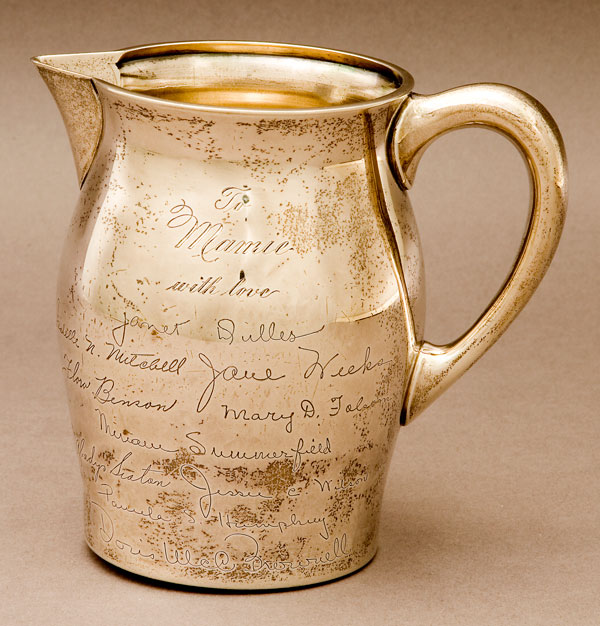 To
Mamie
with love
Janet Dulles
N. Mitchell Jane Weeks
Flow Benson Mary D. Folsom
Miriam Summerfield
Gladys Seaton Jessie C. Wilson
Pamela S. Humphrey
Doris McA. Brownell